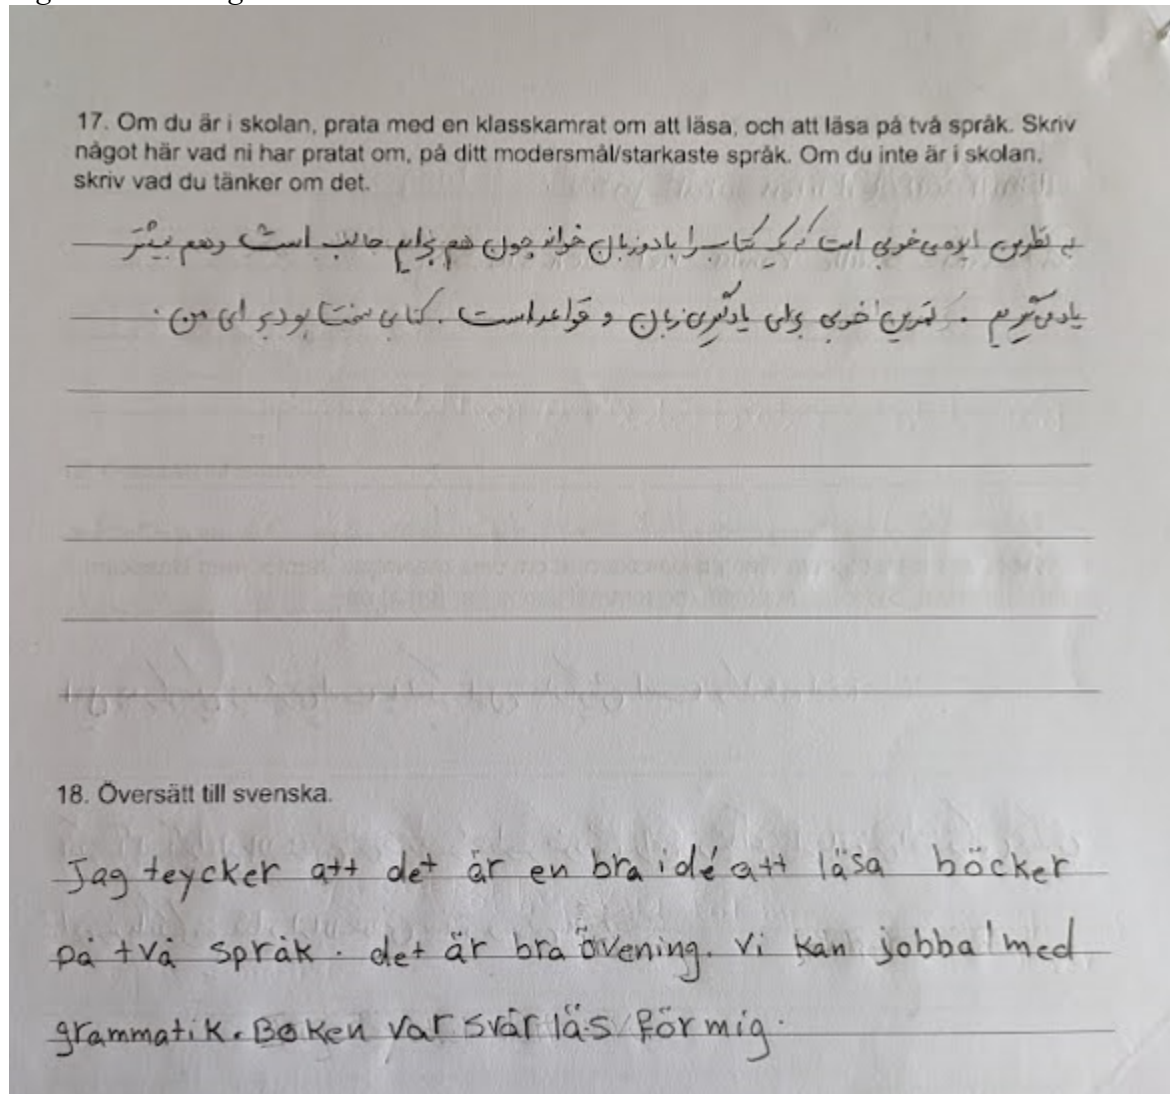 17. Om du är i skolan, prata med en klasskamrat om att läsa, och att läsa på två språk. Skriv
något här vad ni har pratat om, på ditt modersmål/starkaste språk. Om du inte är i skolan,
skriv vad du tänker om det.
به نظرمن ایده ی خوبی است که یک کتاب را با دو زبان خواند چون هم برایم جالب است و هم بیشتر
یاد می گیریم . تمرین خوبی برای یادگیری زبان و قواعد است . کتابی سخت بود برای من .
18. Översätt till svenska.
Jag teycker att det är en bra idé att läsa böcker
på två språk. det är bra övening. Vi kan jobba med
grammatik. Boken var svår läs för mig.